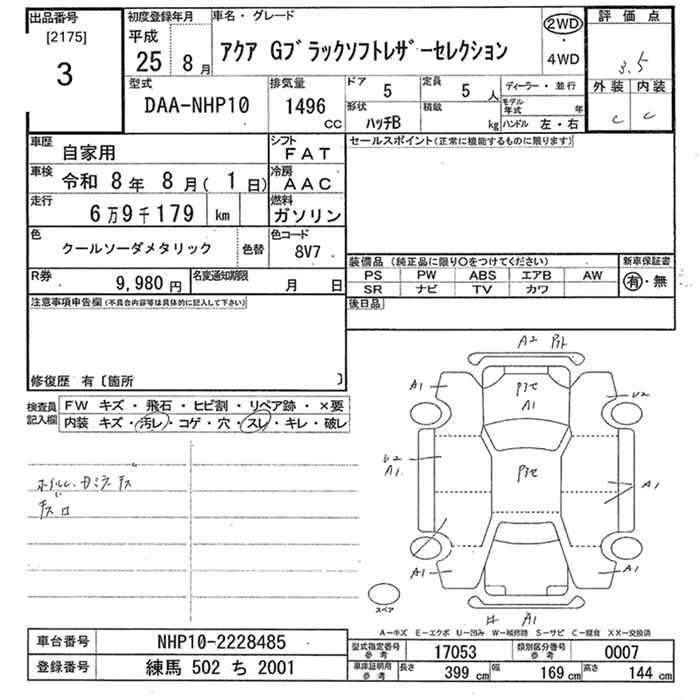 出品番号
[2175]
3
初度登録年月
平成
25 8月
車名・グレード
アクア Gブラックソフトレザーセレクション
2WD
・
4WD
評価点
3.5
外装 内装
C C
型式
DAA-NHP10
排気量
1496
CC
ドア
5
定員
5人
形状
ハッチB
積載
kg
ディーラー・並行
モデル年式 年
ハンドル 左・右
車歴
自家用
シフト
FAT
車検
令和 8年 8月( 1日)
冷房
AAC
走行
6万9千179 km
燃料
ガソリン
色
クールソーダメタリック
色替
色コード
8V7
R券
9,980円
名変通知期限
月 日
セールスポイント(正常に機能するものに限ります)
装備品(純正品に限り○をつけてください)
PS PW ABS エアB AW
SR ナビ TV カワ
新車保証書
有・無
後日品
注意事項申告欄(不具合内容等は具体的に記入して下さい)
修復歴 有〔箇所 〕
検査員記入欄
FW キズ・飛石・ヒビ割・リペア跡・×要
内装 キズ・汚レ・コゲ・穴・スレ・キレ・破レ
A2
A1
A1
U2
U2
A1
A1
A1
A1
A1
スペア
A-キズ E-エクボ U-凹み W-補修跡 S-サビ C-腐食 XX-交換済
車台番号
NHP10-2228485
登録番号
練馬 502 ち 2001
型式指定番号 参考
17053
類別区分番号 参考
0007
車庫証明用 参考
長さ 399 cm
幅 169 cm
高さ 144 cm